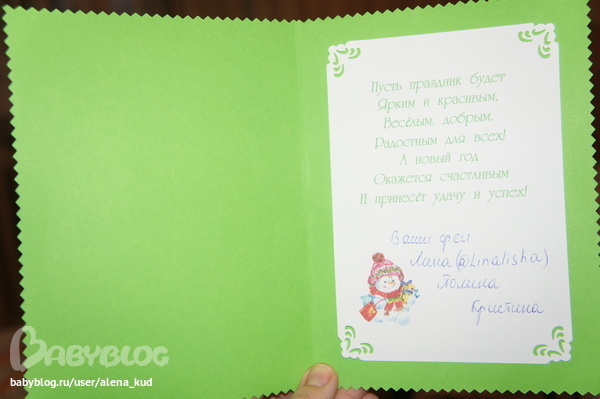 Пусть праздник будет
Ярким и красивым,
Весёлым, добрым,
Радостным для всех!
А новый год
Окажется счастливым
И принесёт удачу и успех!
Ваши феи
Лина (@Linalisha)
Полина
Кристина
BABYBLOG
babyblog.ru/user/alena_kud